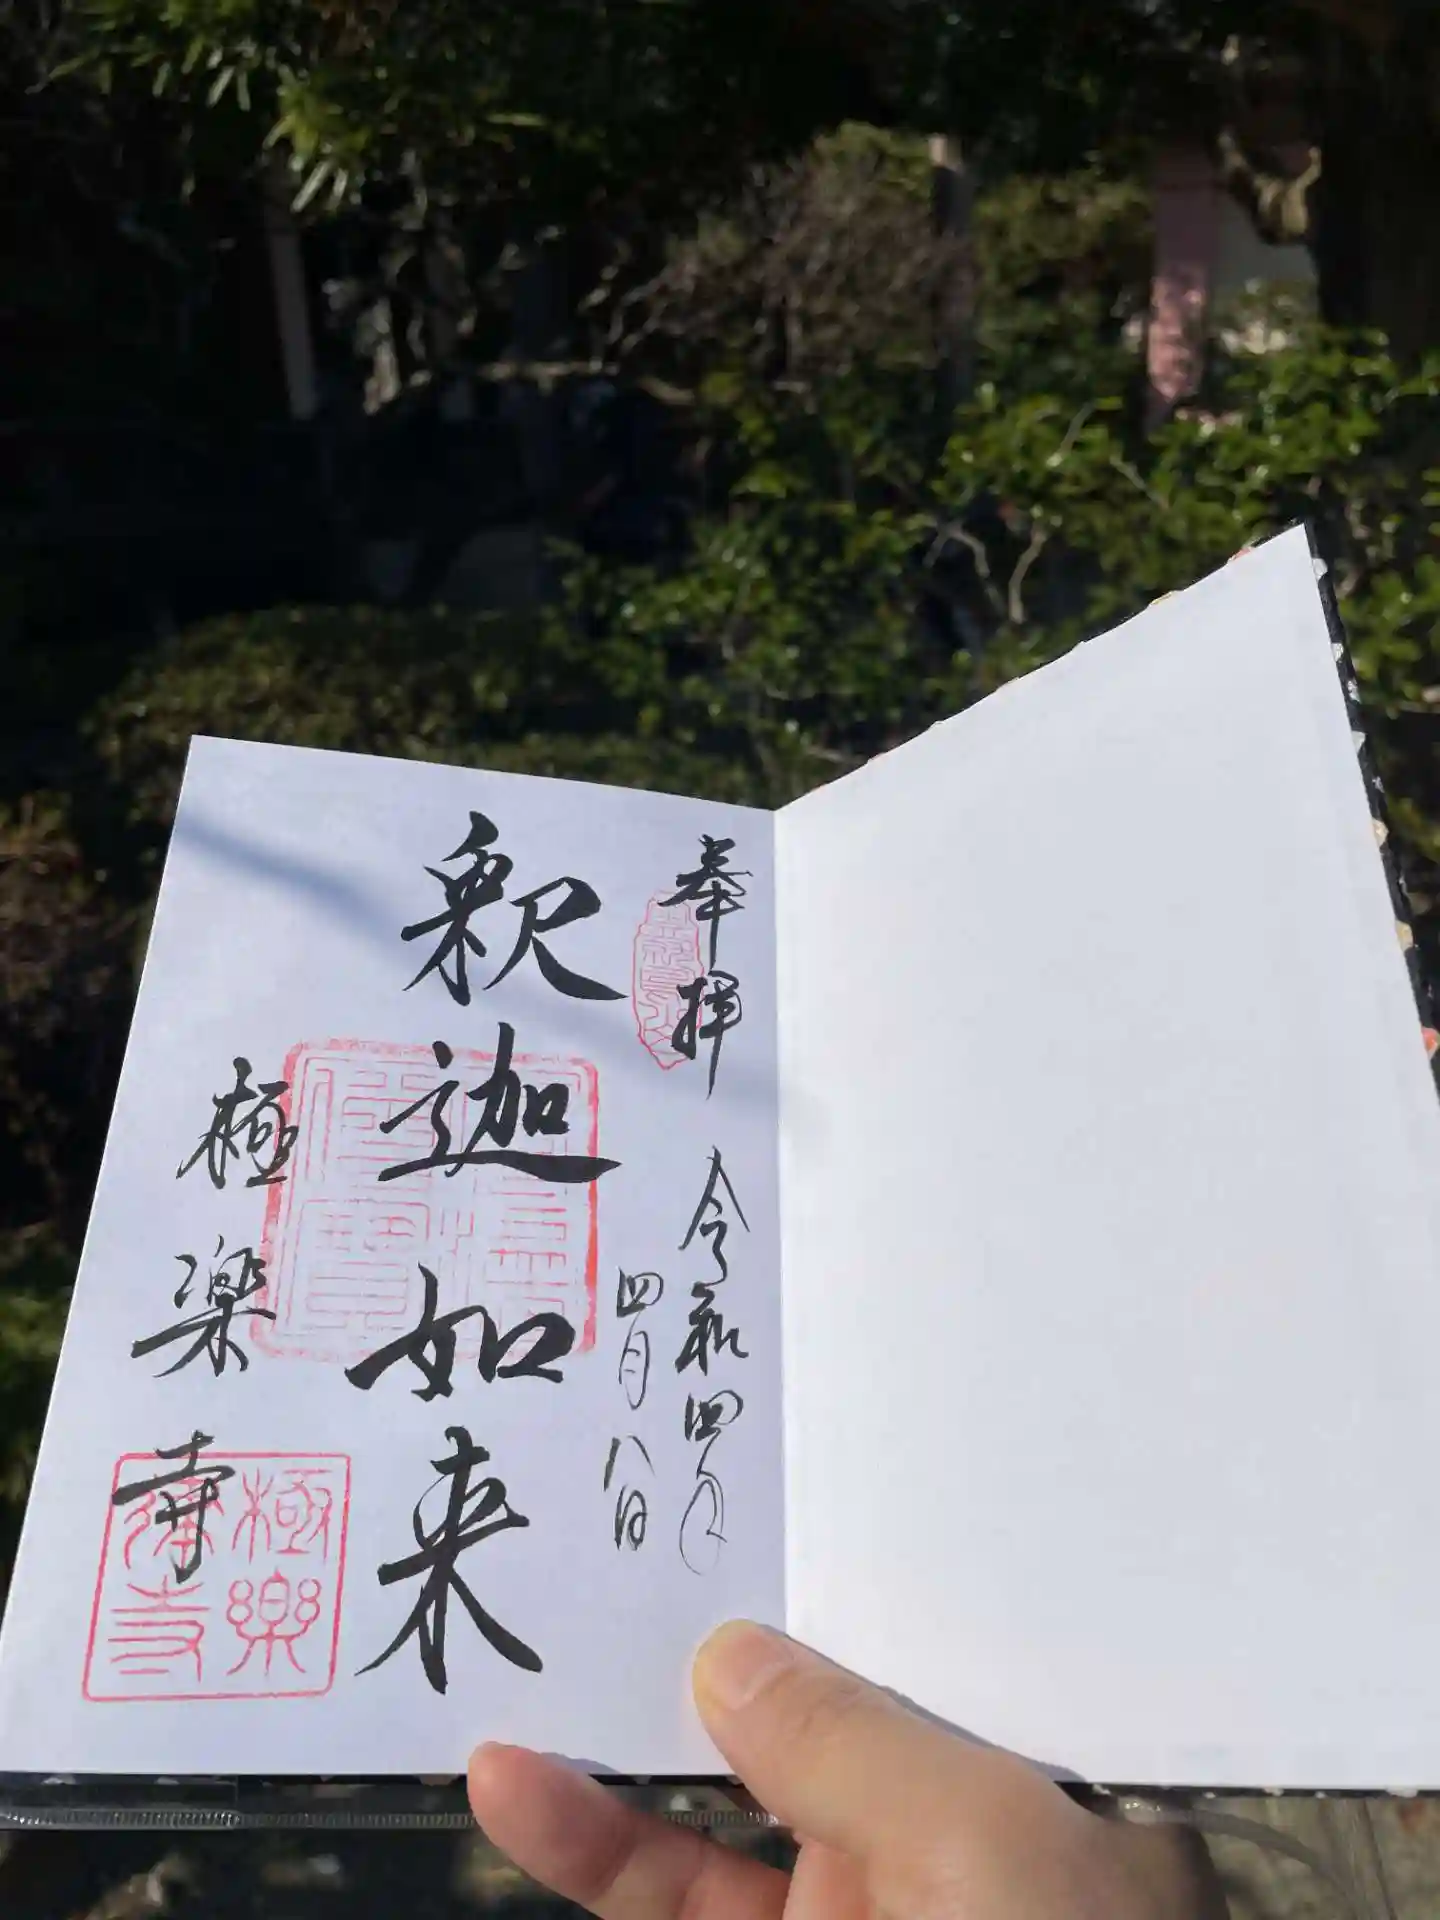 奉拝
令和四年
四月八日
釈迦如来
極楽寺
佛法僧寶
極樂禅寺